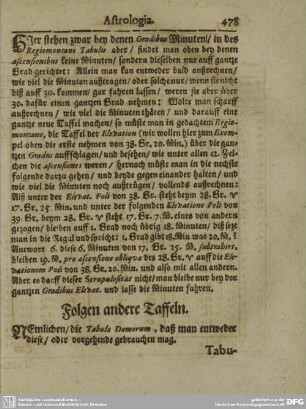 Astrologia. 478
HJer stehen zwar bey denen Gradibus Minuten/ in des
Regiomontani Tabulis aber/ findet man oben bey denen
ascensionibus keine Minuten/ sondern dieselben nur auff gantze
Grad gerichtet: Allein man kan entweder bald außrechnen/
wie viel die Minuten außtragen/ oder solche nur/ wenn sie nicht
biß auff 30. kommen/ gar fahren lassen/ weren sie aber über
30. dafür einen gantzen Grad nehmen: Wolte man scharff
außrechnen/ wie viel die Minuten thäten/ und darauff eine
gantze neue Taffel machen/ so müste man in gedachtem Regio-
montano, die Taffel der Elevation (wir wollen hier zum Exem-
pel oben die erste nehmen von 38. Gr. 20. Min.) über die gan-
tzen Gradus auffschlagen/ und besehen/ wie unter allen 12. Zei-
chen die ascensiones weren/ hernach müste man in die nechste
folgende darzu gehen/ und beyde gegen einander halten/ und
wie viel die Minuten noch außtrügen/ vollends außrechnen:
Als unter der Elevat. Poli von 38. Gr. steht beym 28. Gr. ♈
17. Gr. 25. Min. und unter der folgenden Elevatione Poli von
39. Gr. beym 28. Gr. ♈ steht 17. Gr. 7. M. eines von andern
gezogen/ bleiben auff 1. Grad noch übrig 18. Minuten/ diß setzt
man in die Regul und spricht: 1. Grad gibt 18. Min. was 20. M. ?
Antwort 6. diese 6. Minuten von 17. Gr. 25. M. subtrahirt,
bleiben 19. M. pro ascensione obliqua des 28. Gr. ♈ auff die Ele-
vationem Poli von 38. Gr. 20. Min. und also mit allen andern.
Aber es darff dieser Scrupulosität nicht/ man bleibe nur bey den
gantzen Gradibus Elevat. und lasse die Minuten fahren.
Folgen andere Taffeln.
NEmlichen/ die Tabula Domorum, daß man entweder
diese/ oder vorgehende gebrauchen mag.
Tabu-